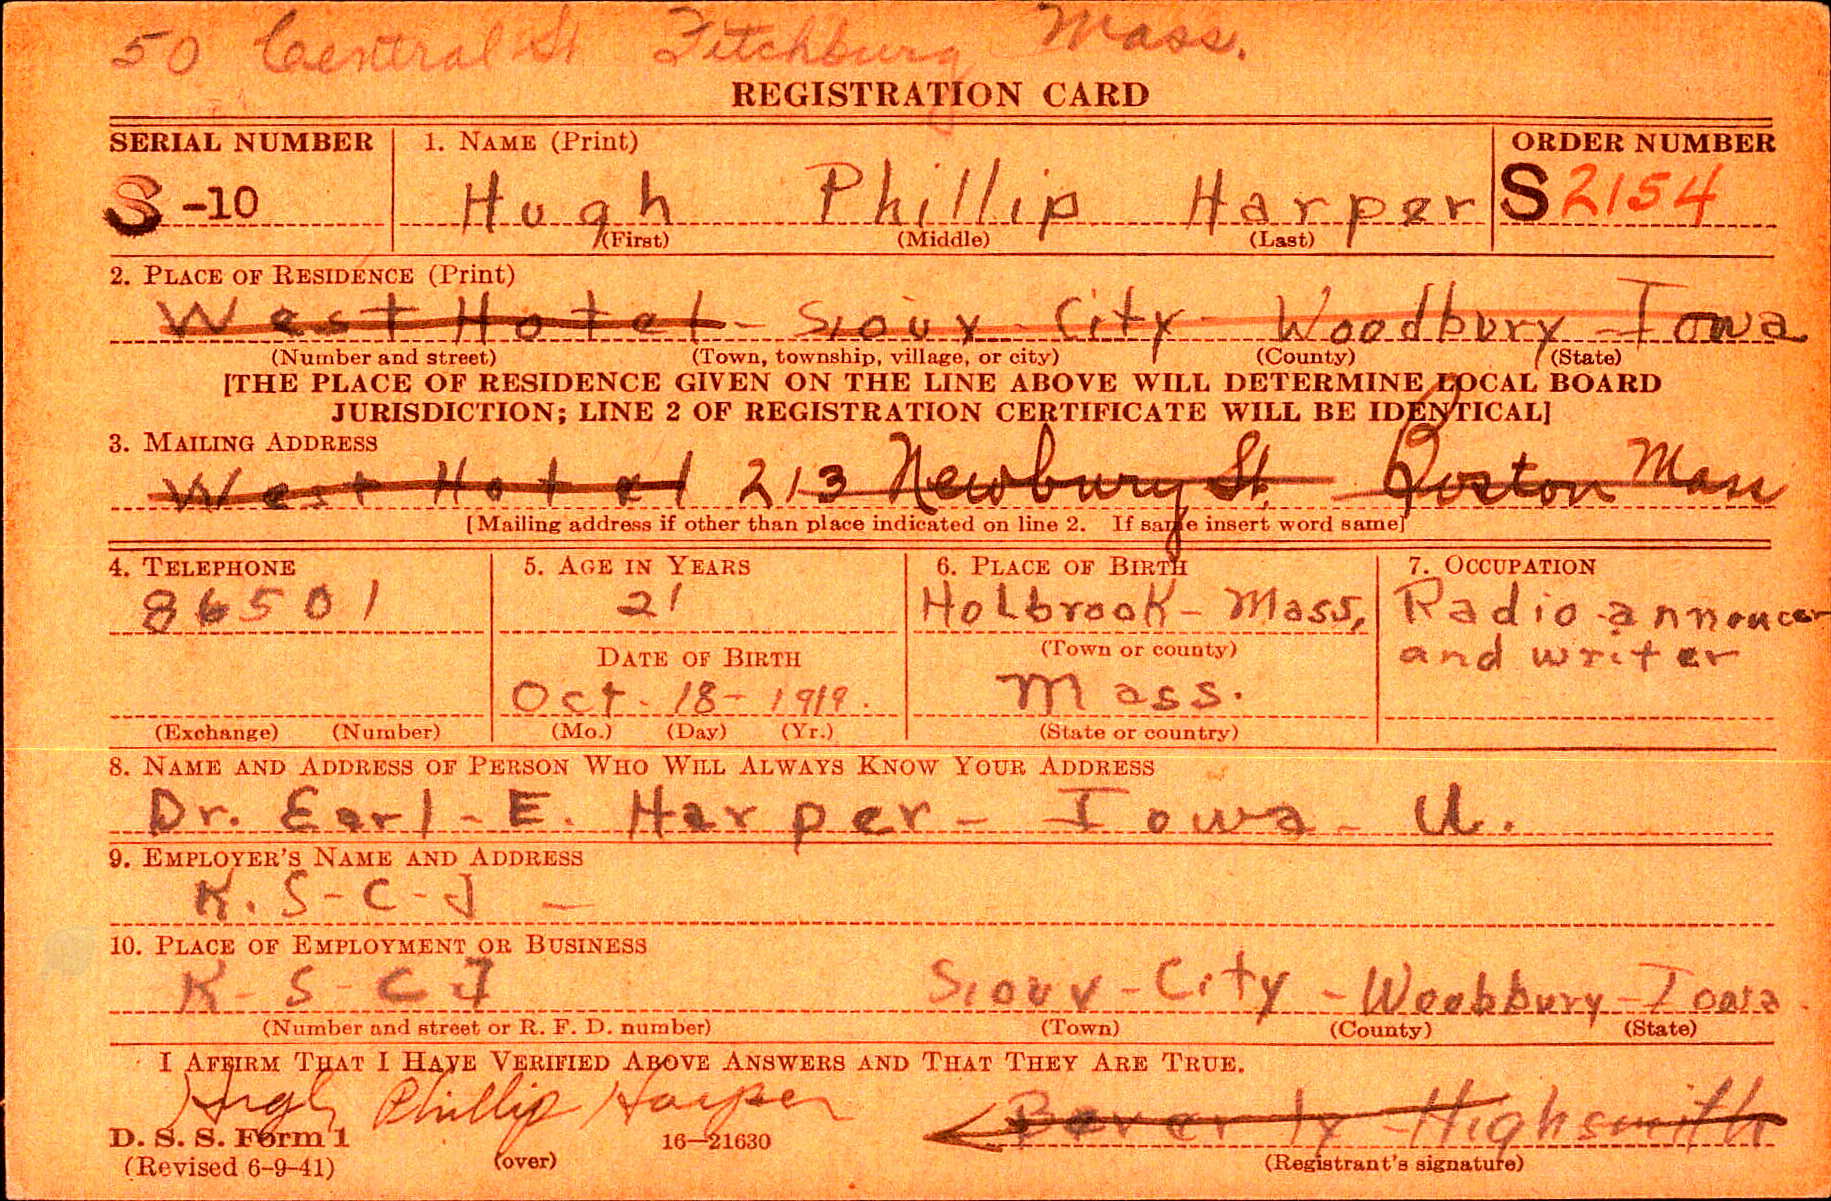 50 Central St Fitchburg Mass.
REGISTRATION CARD
SERIAL NUMBER 1. NAME (Print) ORDER NUMBER
S -10 Hugh Phillip Harper S 2154
(First) (Middle) (Last)
2. PLACE OF RESIDENCE (Print)
West Hotel - Sioux - City - Woodbury - Iowa
(Number and street) (Town, township, village, or city) (County) (State)
[THE PLACE OF RESIDENCE GIVEN ON THE LINE ABOVE WILL DETERMINE LOCAL BOARD
JURISDICTION; LINE 2 OF REGISTRATION CERTIFICATE WILL BE IDENTICAL]
3. MAILING ADDRESS
West Hotel 213 Newbury St. Boston Mass
[Mailing address if other than place indicated on line 2. If same insert word same]
4. TELEPHONE 5. AGE IN YEARS 6. PLACE OF BIRTH 7. OCCUPATION
86501 21 Holbrook - Mass, Radio announcer
(Town or county) and writer
DATE OF BIRTH
Oct - 18 - 1919. Mass.
(Exchange) (Number) (Mo.) (Day) (Yr.) (State or country)
8. NAME AND ADDRESS OF PERSON WHO WILL ALWAYS KNOW YOUR ADDRESS
Dr. Earl - E. Harper - Iowa - U.
9. EMPLOYER'S NAME AND ADDRESS
K. S - C - J -
10. PLACE OF EMPLOYMENT OR BUSINESS
K - S - C J Sioux - City - Woobbury - Iowa
(Number and street or R. F. D. number) (Town) (County) (State)
I AFFIRM THAT I HAVE VERIFIED ABOVE ANSWERS AND THAT THEY ARE TRUE.
Hugh Phillip Harper Beverly - Highsmith
D. S. S. Form 1 16-21630
(Revised 6-9-41) (over) (Registrant's signature)